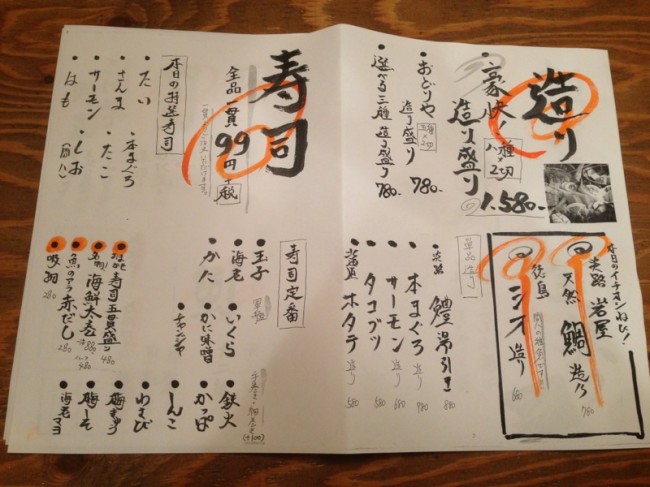 造り
豪快
造り盛り
八種×2切
1.580-
おどりや
造り盛り
780-
選べる三種 造り盛り 780-
本日のイチオシ
淡路 岩屋
天然 鯛 造り
780
徳島
シオ 造り
680
単品造り
淡路 鱧湯引き 880
本まぐろ 造り 980
サーモン 造り 680
タコブツ 580
ホタテ 造り 580
寿司
全品一貫 99円+税
本日のお造寿司
たい
本まぐろ
さんま
たこ
サーモン
しお
はも
寿司定番
玉子
いくら
鉄火
海老
かに味噌
かっぱ
かた
チャンジャ
しんこ
わさび
梅きゅう
梅しそ
海老マヨ
寿司五貫盛り 480
名物! 海鮮太巻 880
ハーフ 480
魚のアラ赤だし 280
吸物 280